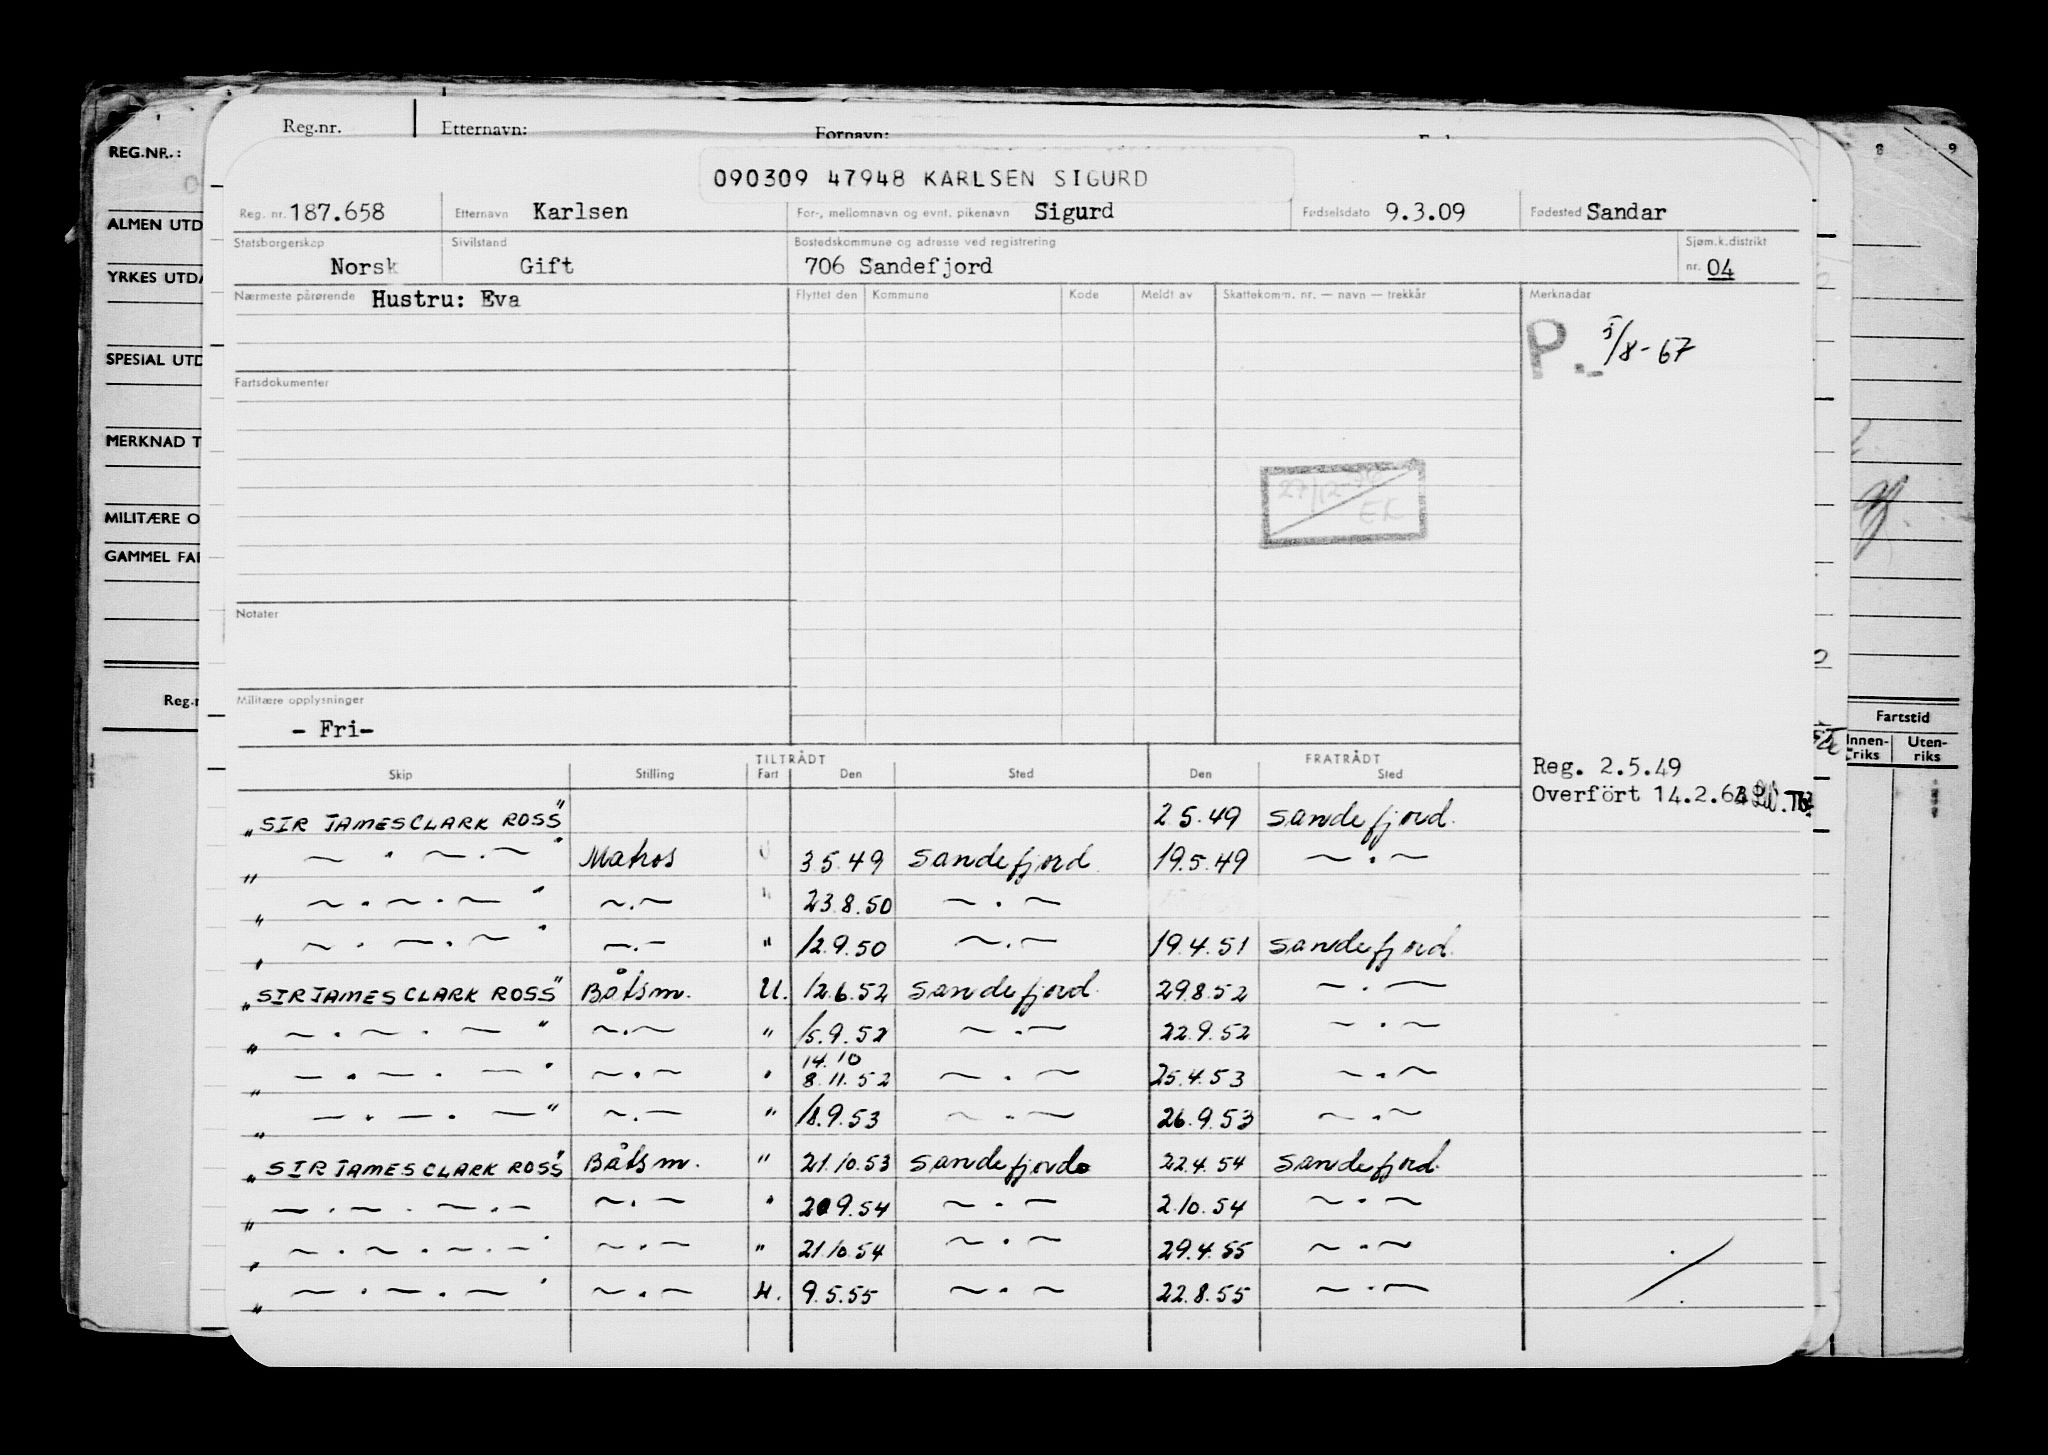 Reg.nr. Etternavn: Fornavn:
REG.NR.: 8 9
090309 47948 KARLSEN SIGURD
Reg. nr. 187.658 Etternavn Karlsen For-, mellomnavn og evnt. pikenavn Sigurd Fødselsdato 9.3.09 Fødested Sandar
ALMEN UTD
Statsborgerskap Sivilstand Bostedskommune og adresse ved registrering Sjøm.k.distrikt
Norsk Gift 706 Sandefjord nr. 04
YRKES UTDA
Nærmeste pårørende Hustru: Eva Flyttet den Kommune Kode Meldt av Skattekomm. nr. — navn — trekkår Merknadar
P. 5/8-67
SPESIAL UTD
Fartsdokumenter
MERKNAD T
27/12-
EK
MILITÆRE O
GAMMEL FAR
Notater
Militære opplysninger
Reg.n
- Fri-
Fartstid
Innen-riks Uten-riks
TILTRÅDT FRATRÅDT
Skip Stilling Fart Den Sted Den Sted
Reg. 2.5.49
Overfört 14.2.63
"SIR JAMES CLARK ROSS" 2.5.49 Sandefjord.
" ~ . ~ . ~ " Matros U 3.5.49 Sandefjord 19.5.49 ~ . ~
" ~ . ~ . ~ " ~ . ~ " 23.8.50 ~ . ~
" ~ . ~ . ~ " ~ . ~ " 12.9.50 ~ . ~ 19.4.51 Sandefjord.
"SIR JAMES CLARK ROSS" Båtsm. U. 12.6.52 Sandefjord. 29.8.52 ~ . ~
" ~ . ~ . ~ " ~ . ~ " 15.9.52 ~ . ~ 22.9.52 ~ . ~
14.10
" ~ . ~ . ~ " ~ . ~ " 8.11.52 ~ . ~ 25.4.53 ~ . ~
" ~ . ~ . ~ " ~ . ~ " 18.9.53 ~ . ~ 26.9.53 ~ . ~
"SIR JAMES CLARK ROSS" Båtsm. " 21.10.53 Sandefjord 22.4.54 Sandefjord.
" ~ . ~ . ~ . ~ ~ . ~ " 20.9.54 ~ . ~ 2.10.54 ~ . ~
" ~ . ~ . ~ . ~ " ~ . ~ " 21.10.54 ~ . ~ 29.4.55 ~ . ~
" ~ . ~ . ~ " ~ . ~ H. 9.5.55 ~ . ~ 22.8.55 ~ . ~